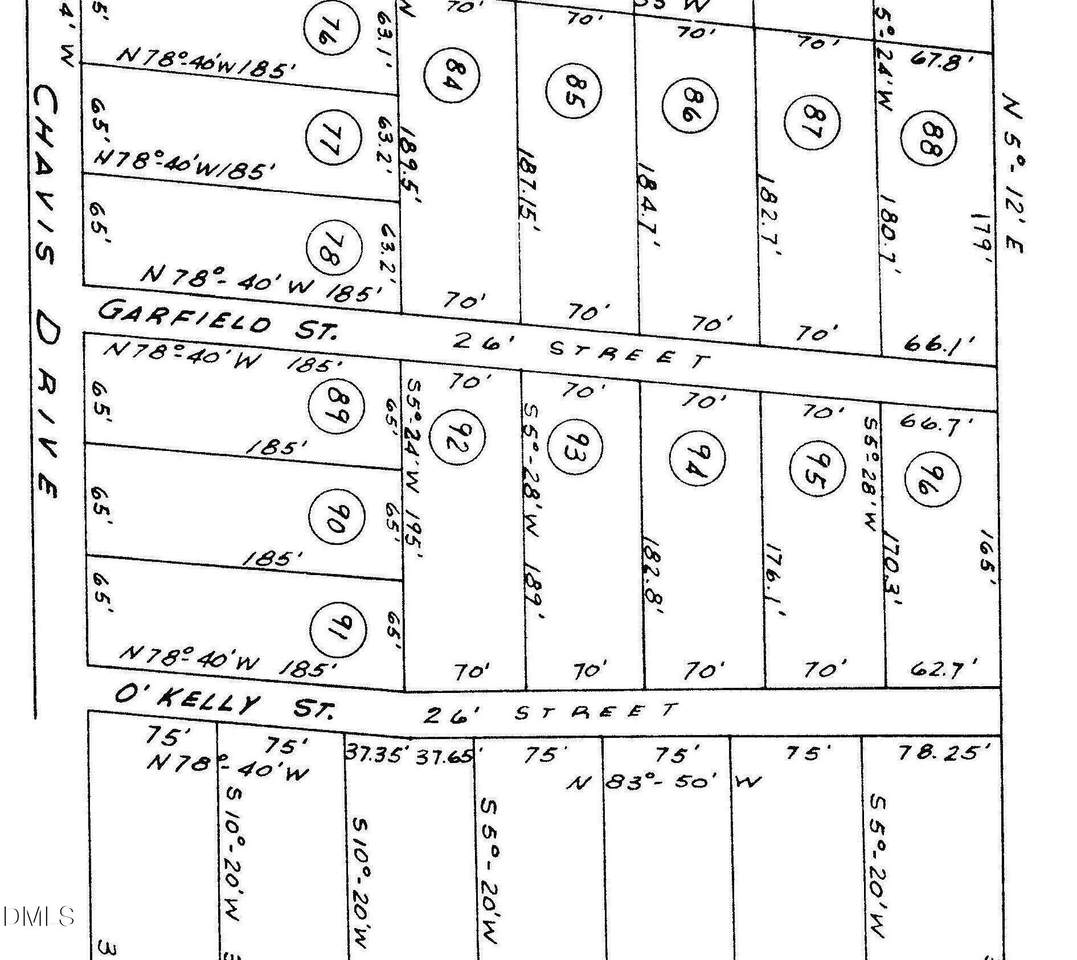 4' W
5'
76
63.1'
W
70'
84
70'
85
70'
86
70'
87
5°-24'W
67.8'
88
N 5°-12' E
N 78°-40'W 185'
65'
77
63.2'
189.5'
187.15'
184.7'
182.7'
180.7'
179'
N78°-40'W 185'
65'
78
63.2'
N 78°-40' W 185'
70'
70'
70'
70'
66.1'
CHAVIS DRIVE
GARFIELD ST.
26' STREET
N78°-40' W 185'
65'
89
65'
S5°-24'W 195'
70'
92
S5°-28'W 189'
70'
93
70'
94
70'
95
S5°-28'W
66.7'
96
185'
65'
90
65'
182.8'
176.1'
170.3'
165'
185'
65'
91
65'
N78°-40'W 185'
70'
70'
70'
70'
62.7'
O'KELLY ST.
26' STREET
75'
75'
37.35'
37.65'
75'
75'
75'
78.25'
N78°-40'W
N 83°-50' W
S 10°-20'W
S10°-20'W
S 5°-20'W
S 5°-20'W
DMLS
3
3